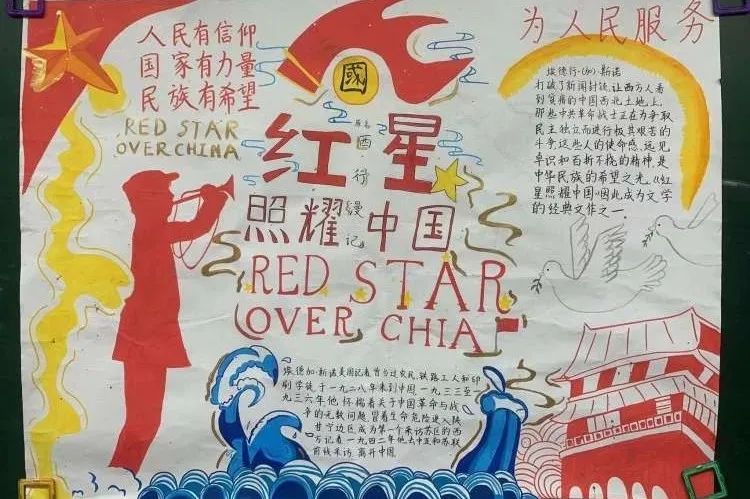 人民有信仰
国家有力量
民族有希望
RED STAR
OVER CHINA
國
红星
原名
西·行
漫记
照耀中国
RED STAR
OVER CHIA
为人民服务
埃德行·(加)·斯诺
打破了新闻封锁,让西方人看
到贫瘠的中国西北土地上,
那些中共革命战士正在为争取
民主独立而进行极其艰苦的
斗争,这些人的使命感,远见
卓识和百折不挠的精神是
中华民族的希望之光。《红
星照耀中国》因此成为文学
的经典文作之一.
埃德加·斯诺美国记者曾当过农民,铁路工人和印
刷学徒于一九二八年来到中国,一九三三至一
九三六年他怀揣着关于中国革命与战
争的无数问题,冒着生命危险进入陕
甘宁边区成为第一个来访苏区的西
方记者一九四二年他去中亚和苏联
前线采访,离开中国.